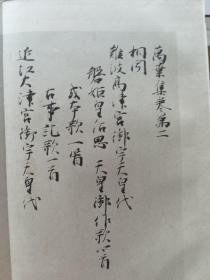 萬葉集卷第二
相聞
難波高津宮御宇天皇代
磐姫皇后思天皇御作歌四首
或本歌一首
古事記歌一首
近江大津宮御宇天皇代